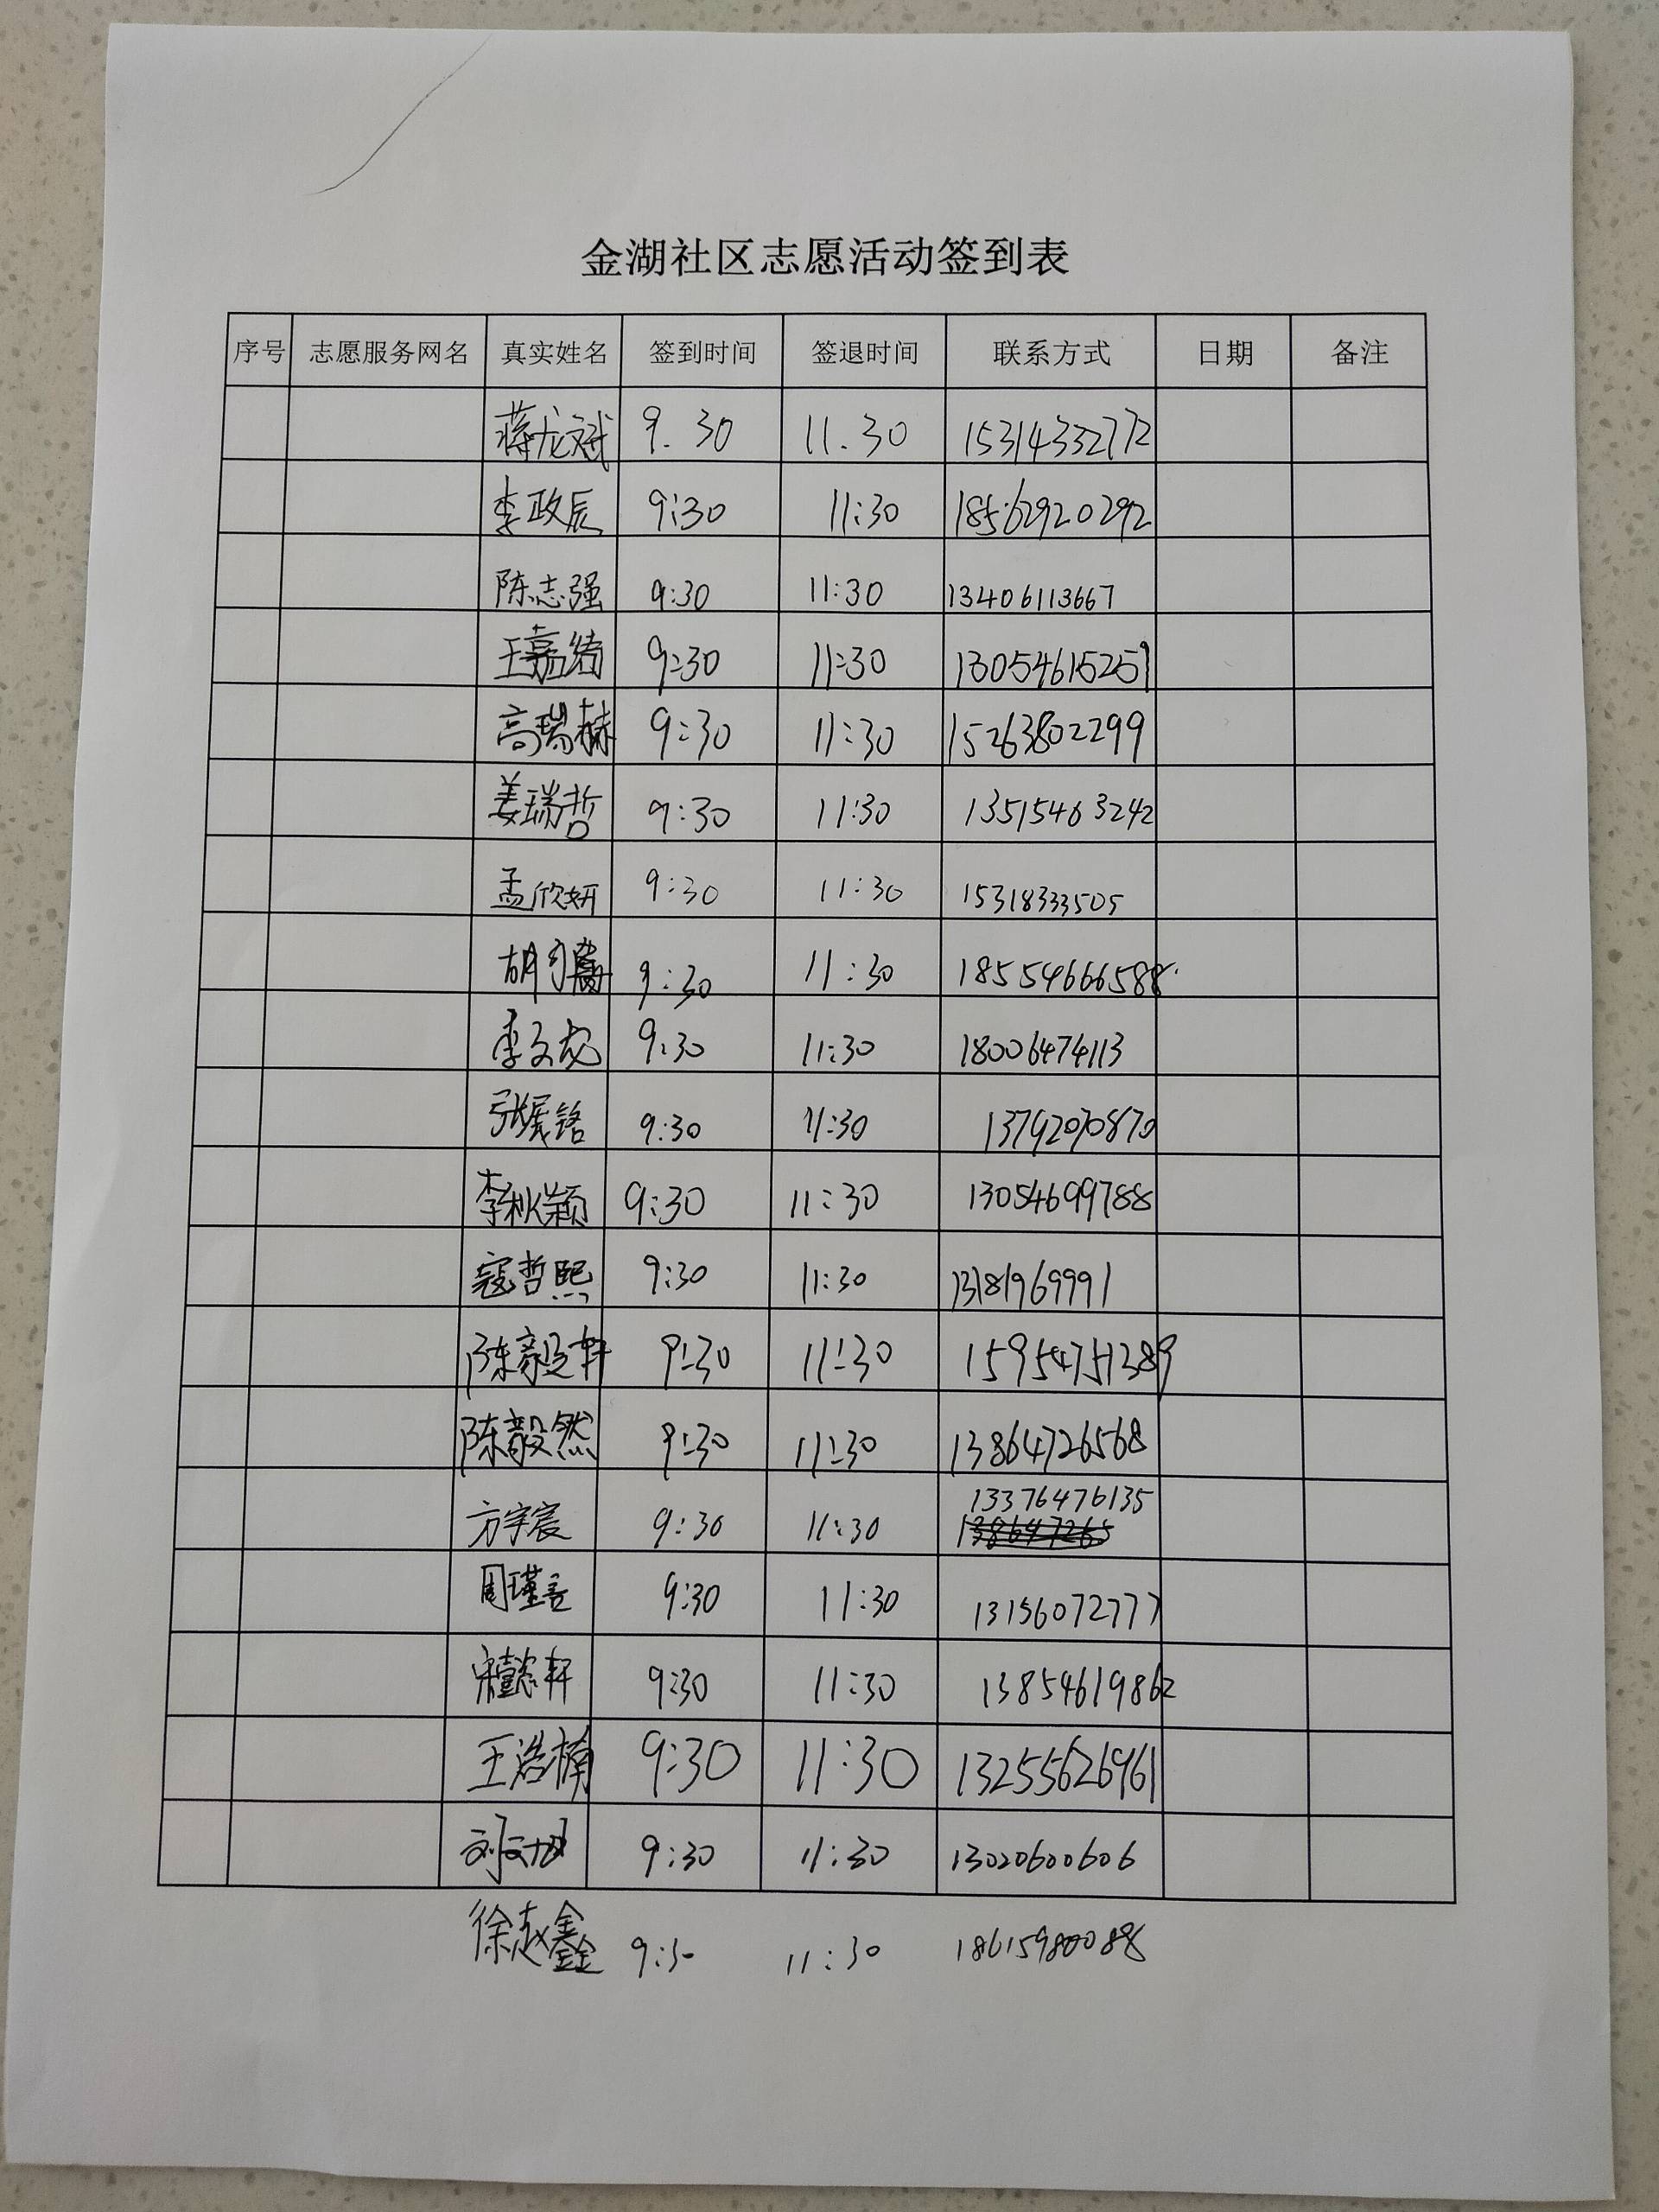 金湖社区志愿活动签到表
序号 志愿服务网名 真实姓名 签到时间 签退时间 联系方式 日期 备注
蒋龙斌 9.30 11.30 15314332772
李政辰 9:30 11:30 18562920292
陈志强 9:30 11:30 13406113667
王嘉绪 9:30 11:30 13054615251
高瑞赫 9:30 11:30 15263802299
姜瑞哲 9:30 11:30 13515463242
孟欣妍 9:30 11:30 15318333505
9:30 11:30 18554666588
李文龙 9:30 11:30 18006474113
9:30 11:30 13792070870
李秋颖 9:30 11:30 13054699788
寇哲熙 9:30 11:30 13181969991
陈毅轩 9:30 11:30 15954751389
陈毅然 9:30 11:30 13864726568
13376476135
方宇宸 9:30 11:30
周瑾言 9:30 11:30 13156072777
宋懿轩 9:30 11:30 13854619862
王浩楠 9:30 11:30 13255626961
9:30 11:30 13020600606
徐赵鑫 9:30 11:30 18615980088